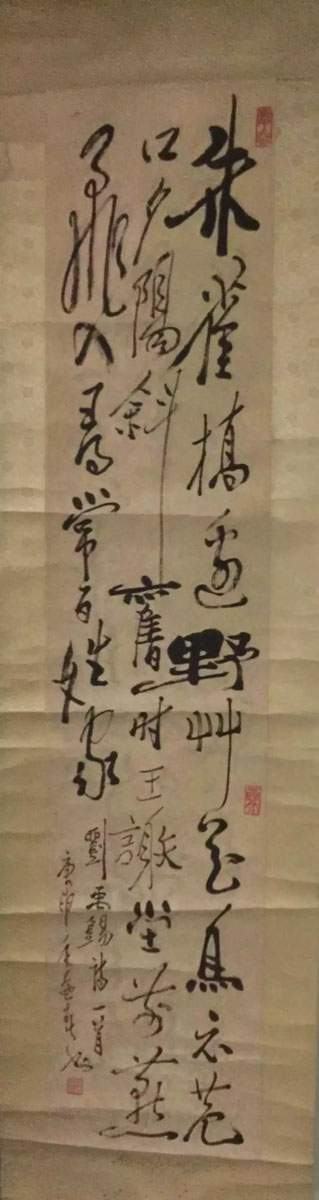 朱雀橋邊野艸花烏衣巷
口夕陽斜舊时王謝堂前燕
飛入尋常百姓家
劉禹錫詩一首